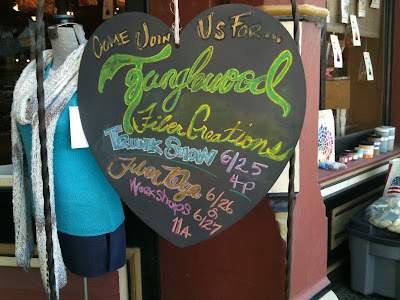 COME JOIN US FOR...
Tanglewood
Fiber Creations
TRUNK SHOW 6/25
4P
Fiber Dye 6/26
Workshops &
6/27
11A